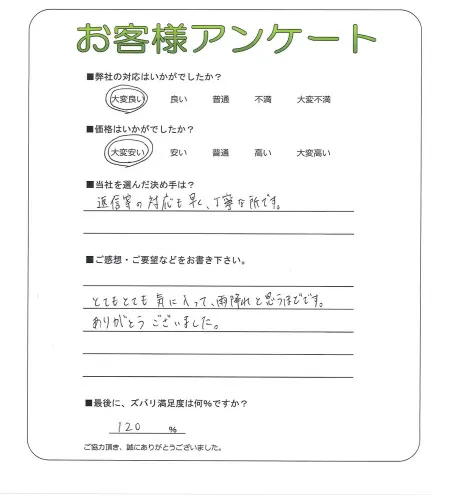 お客様アンケート
■弊社の対応はいかがでしたか？
大変良い 良い 普通 不満 大変不満
■価格はいかがでしたか？
大変安い 安い 普通 高い 大変高い
■当社を選んだ決め手は？
返信等の対応も早く、丁寧な所です。
■ご感想・ご要望などをお書き下さい。
とてもとても気に入って、雨降れと思うほどです。
ありがとうございました。
■最後に、ズバリ満足度は何%ですか？
120 %
ご協力頂き、誠にありがとうございました。